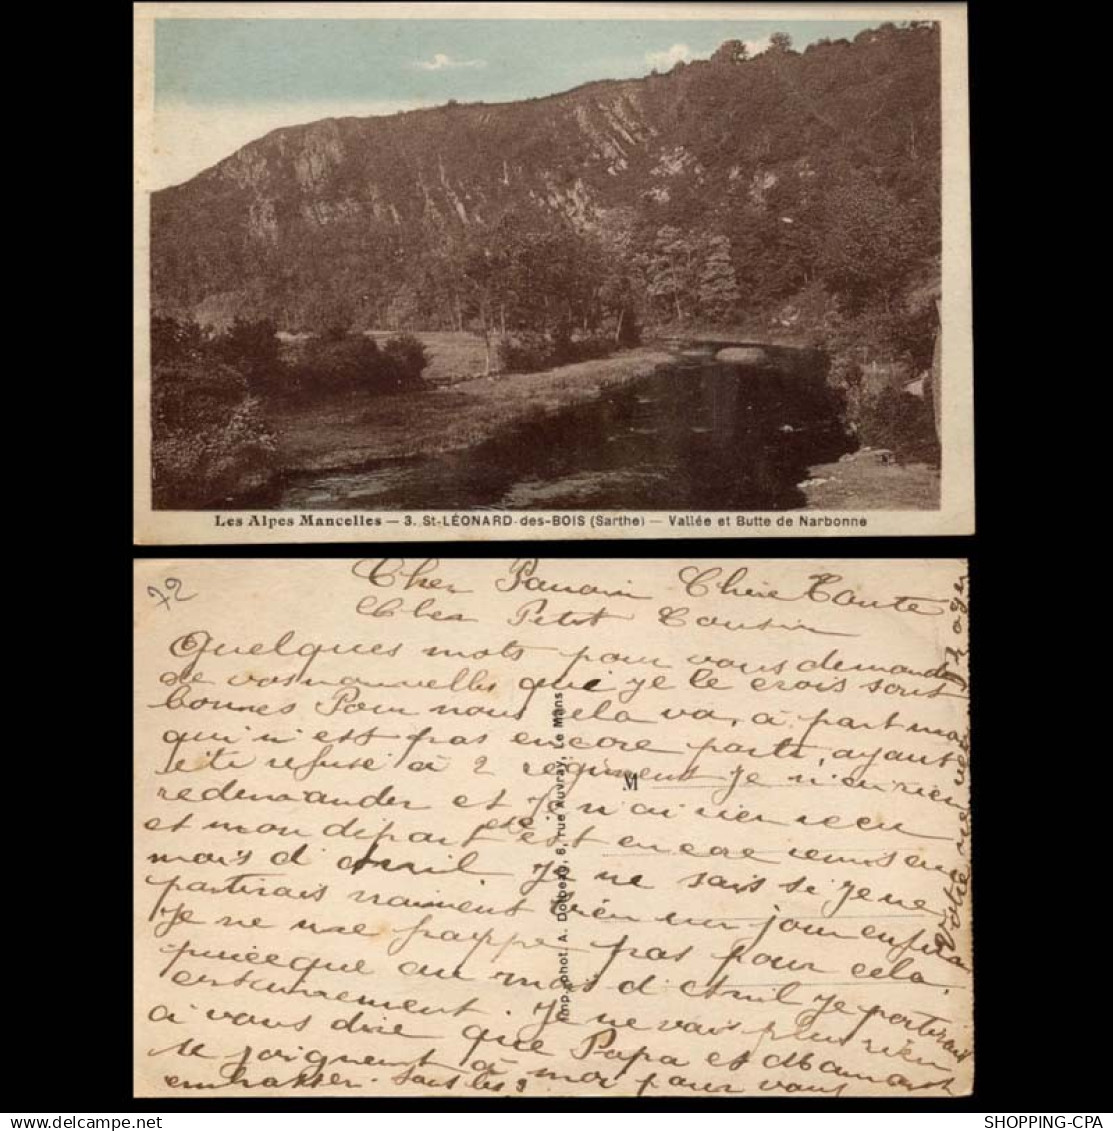 Les Alpes Mancelles — 3. St-LÉONARD-des-BOIS (Sarthe) — Vallée et Butte de Narbonne
72
Cher Parrain Chère Tante
Cher Petit Cousin
Quelques mots pour vous demander
de vos nouvelles qui je le crois sont
bonnes Pour nous cela va, à part moi
qui n'est pas encore parti, ayant
été refusé à 2 régiment je n'en rien
redemander et je n'ai rien recu
et mon départ est encore remis au
mois d'Avril je ne sais si je ne
partirais vraiment bien un jour enfin
je ne me frappe pas pour cela,
puisque au mois d'Avril je partirais
surement. Je ne vais plus rien
à vous dire que Papa et Maman
se joignent à moi pour vous
embrasser. tous les 3
Votre neveu
Roger
M
Imp. phot. A. Dolbeau, 6, rue Auvray, Le Mans
SHOPPING-CPA